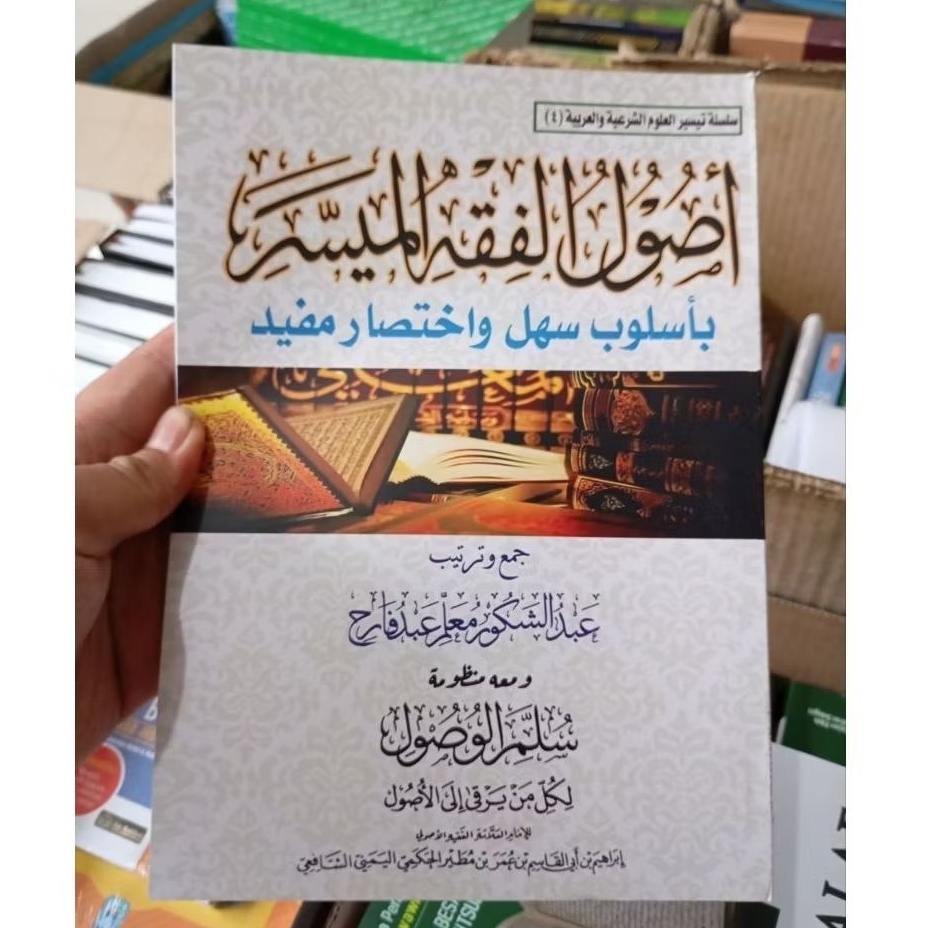 سلسلة تيسير العلوم الشرعية والعربية (٤)
أُصُوْلُ الْفِقْهِ الْمُيَسَّرِ
بأسلوب سهل واختصار مفيد
جمع وترتيب
عَبْدُ الشَّكُوْر مُعَلِّم عَبْدُ فَارِح
ومعه منظومة
سُلَّمُ الْوُصُوْلِ
لِكُلِّ مَنْ يَرْقَى إِلَى الْأُصُوْل
للإمام العلامة الفقيه الأصولي
إبراهيم بن أبي القاسم بن عمر بن مطير الحكمي اليمني الشافعي